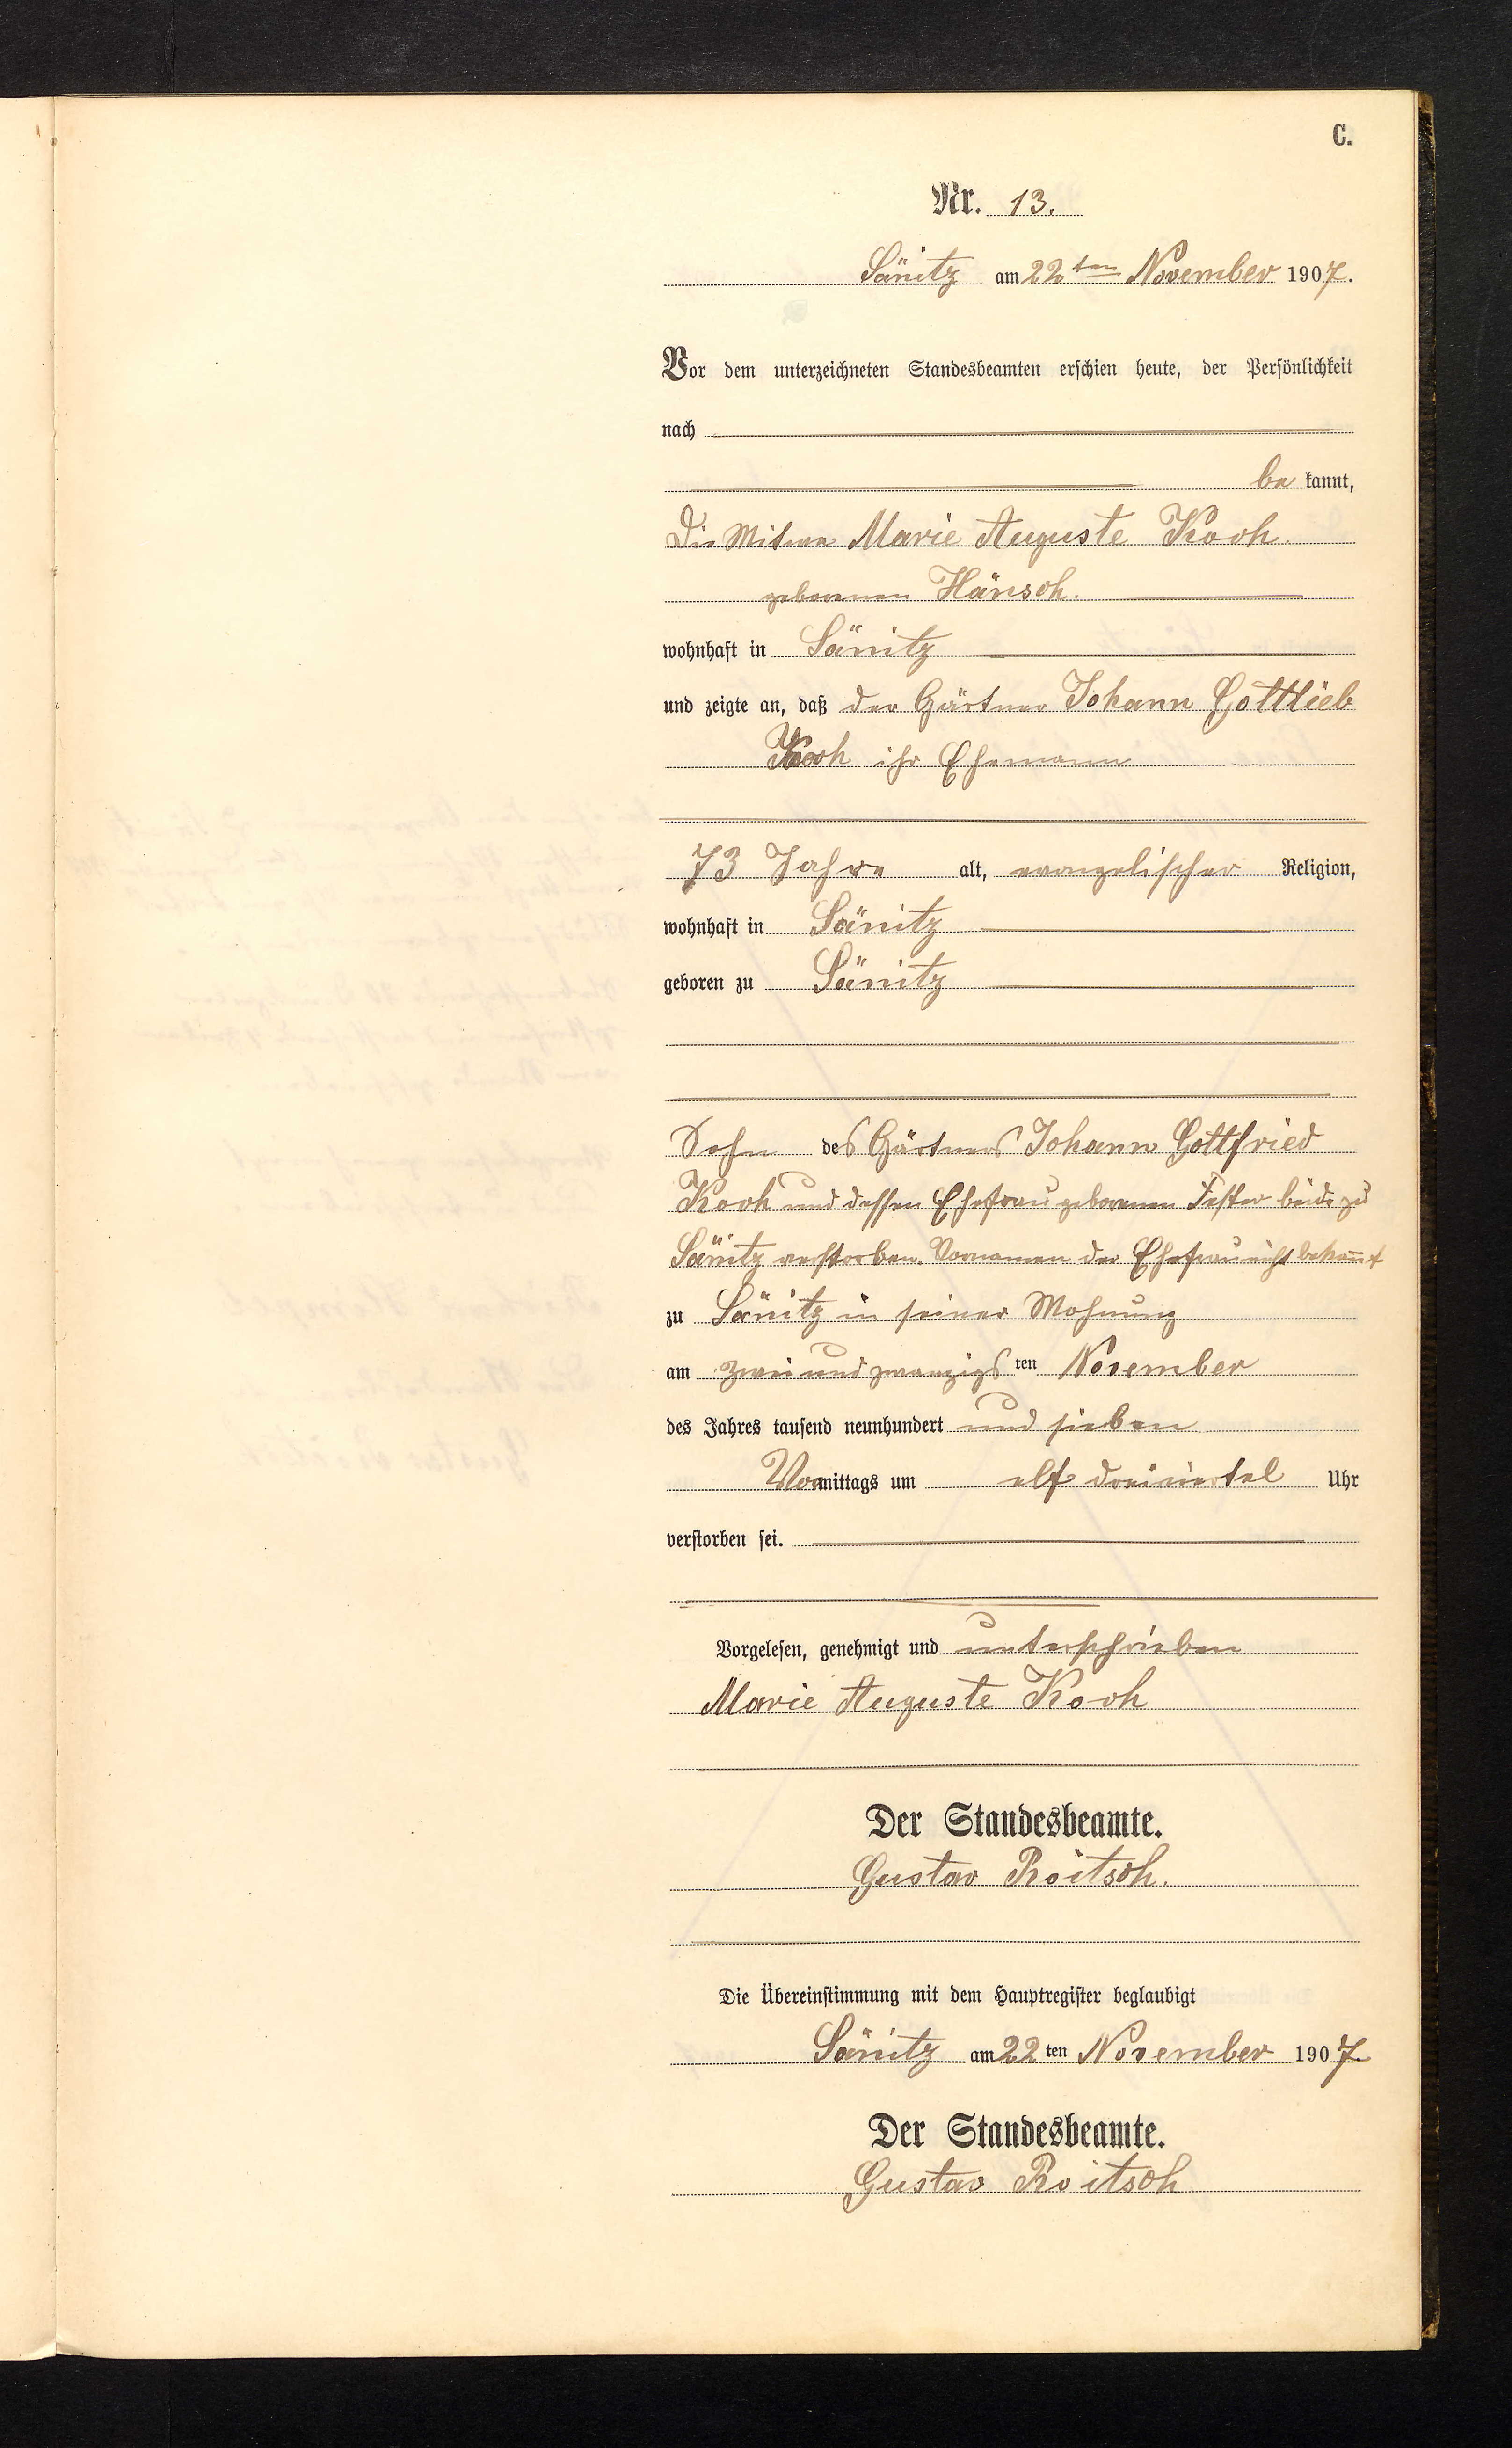 C.
Nr. 13.
Sänitz am 22ten November 1907.
Vor dem unterzeichneten Standesbeamten erschien heute, der Persönlichkeit
nach
be kannt,
Die Witwe Marie Auguste Koch
geborenen Hänsch.
wohnhaft in Sänitz
und zeigte an, daß der Gärtner Johann Gottlieb
Koch ihr Ehemann
73 Jahre alt, evangelischer Religion,
wohnhaft in Sänitz
geboren zu Sänitz
Sohn des Gärtners Johann Gottfried
Koch und dessen Ehefrau geborenen beide zu
Sänitz verstorben. Vornamen der Ehefrau nicht bekannt
zu Sänitz in seiner Wohnung
am zwei und zwanzigs ten November
des Jahres tausend neunhundert und sieben
Vormittags um elf dreiviertel Uhr
verstorben sei.
Vorgelesen, genehmigt und unterschrieben
Marie Auguste Koch
Der Standesbeamte.
Gustav Roitsch.
Die Übereinstimmung mit dem Hauptregister beglaubigt
Sänitz am 22 ten November 1907
Der Standesbeamte.
Gustav Roitsch